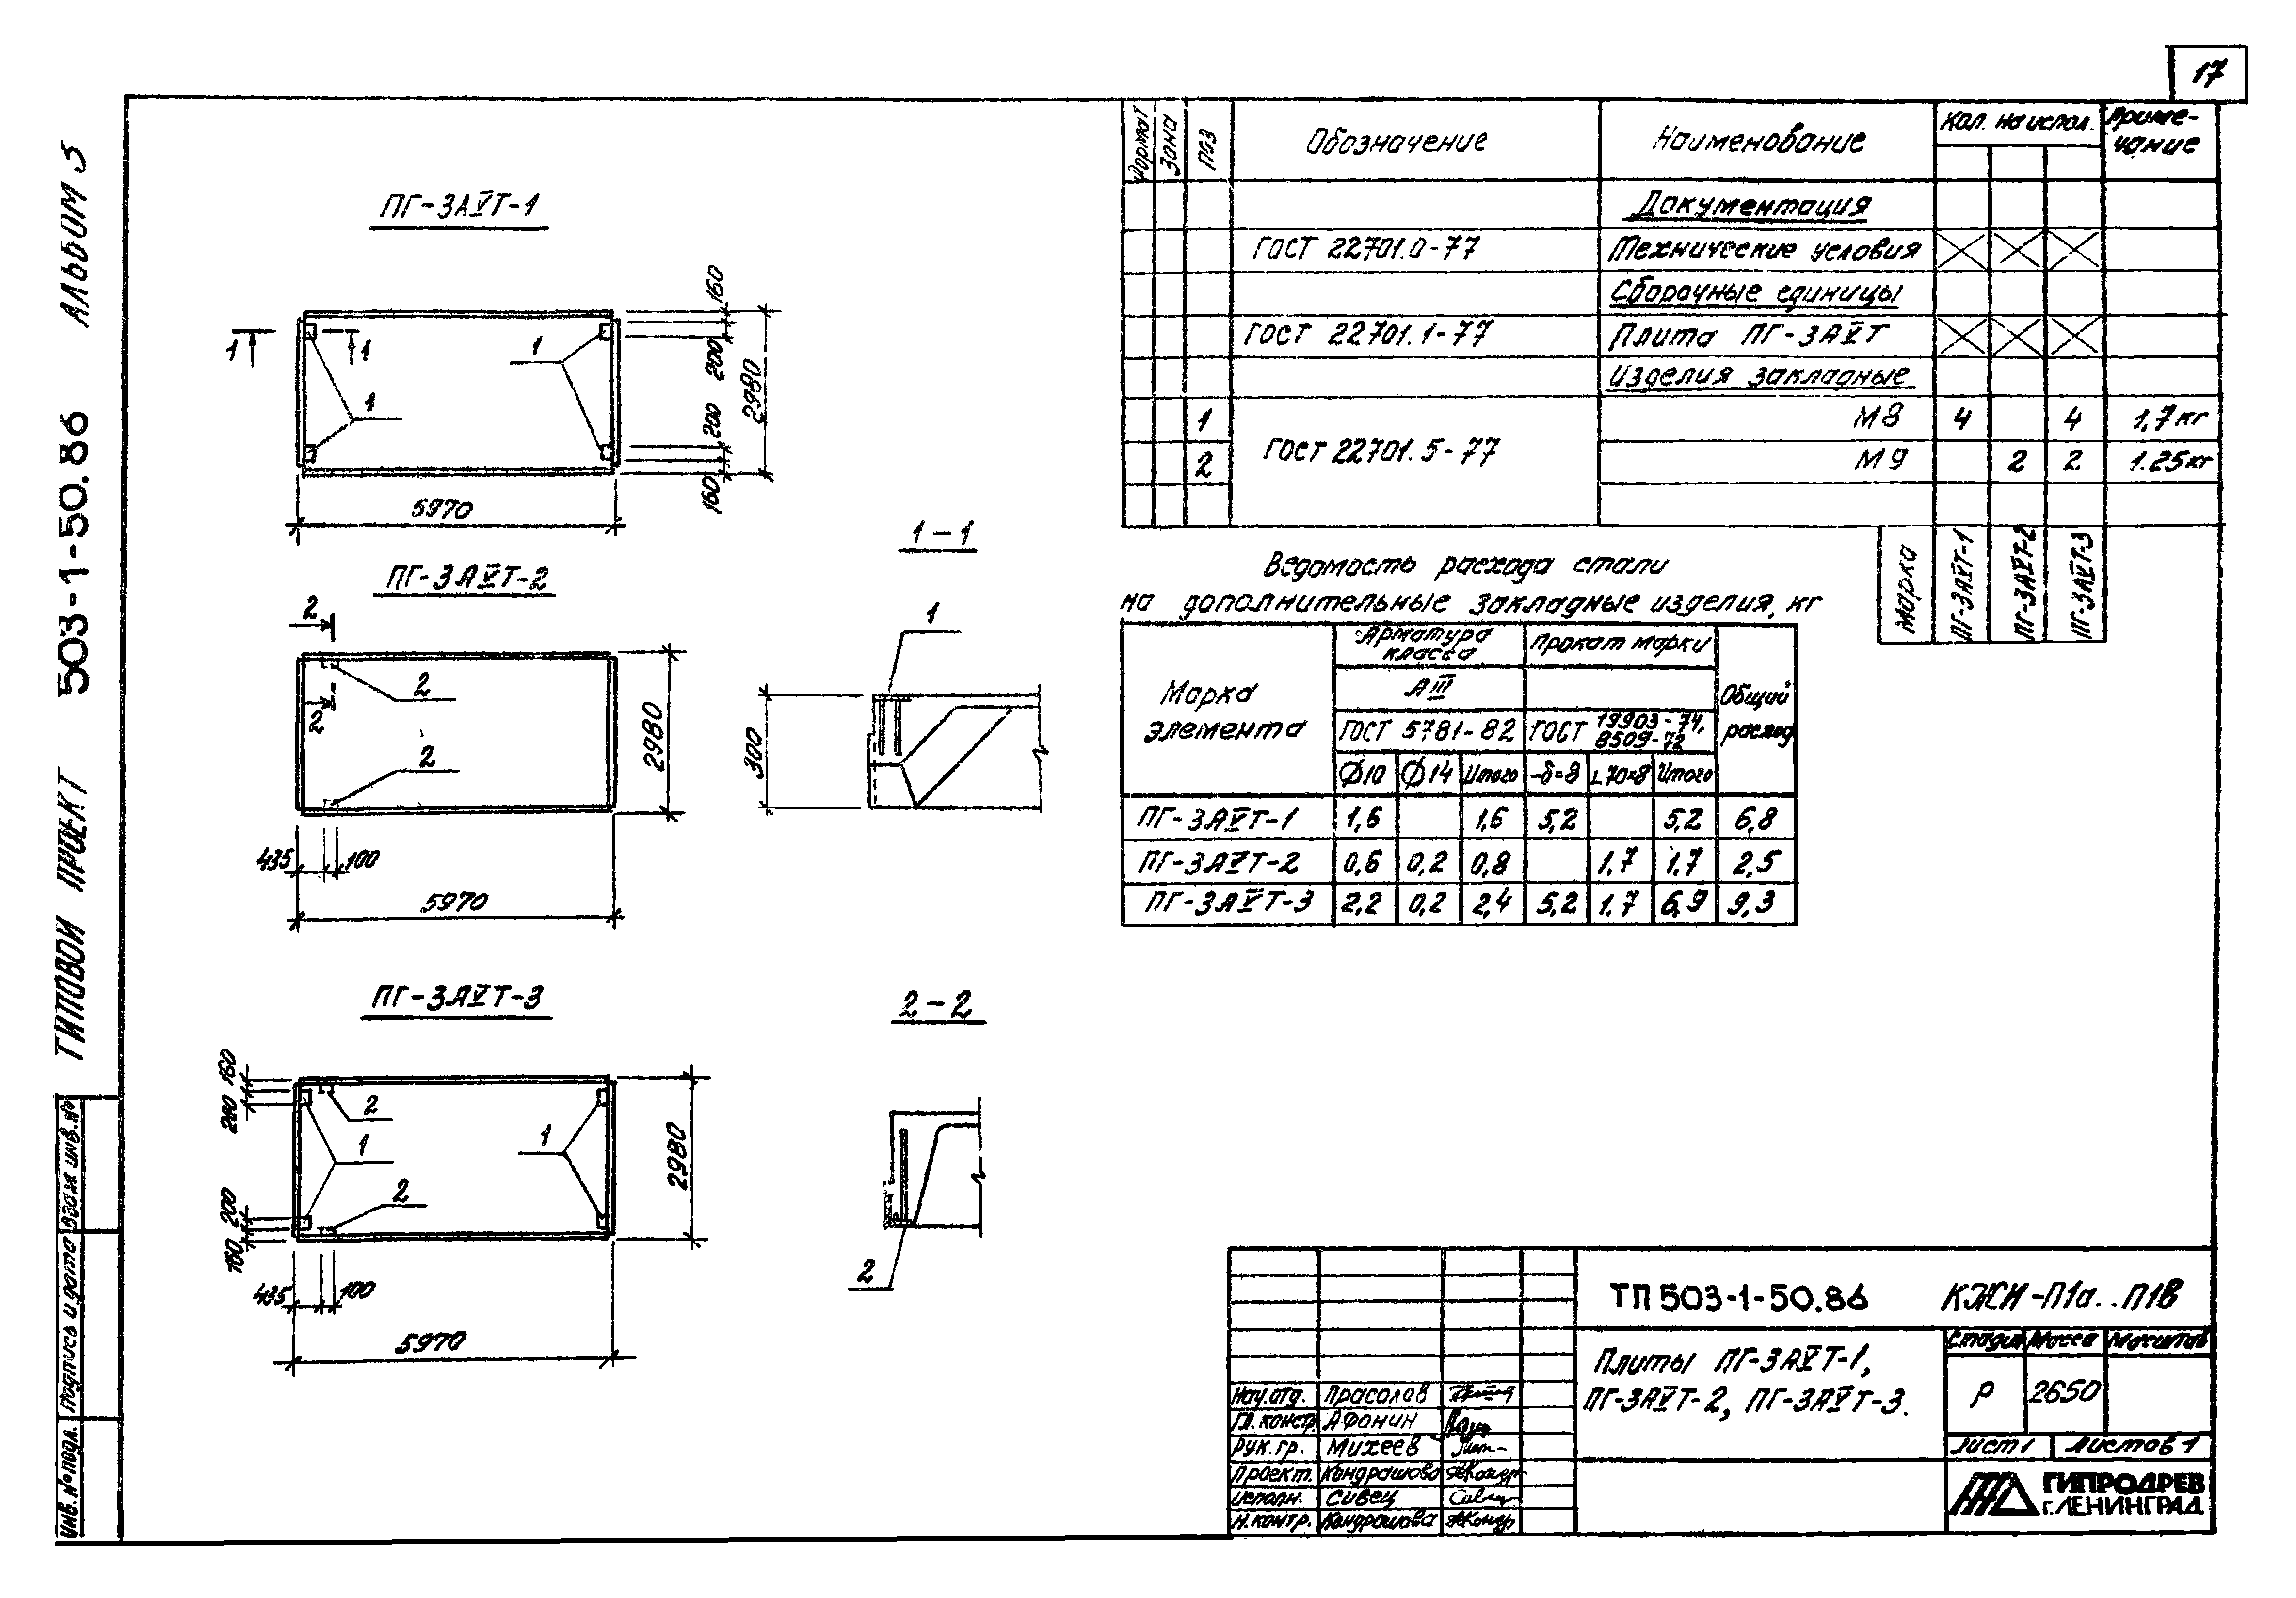 17
АЛЬБОМ 5
503-1-50.86
ТИПОВОЙ ПРОЕКТ
Взам инв.№
Подпись и дата
Инв.№подл.
ПГ-3АⅣТ-1
1
1
1
1
160
200
200
160
2980
5970
ПГ-3АⅣТ-2
2
2
2
2
2980
435
100
5970
ПГ-3АⅣТ-3
160
200
200
160
2
1
1
2
2980
435
100
5970
1-1
1
300
2-2
2
Формат
Зона
Поз
Обозначение
Наименование
Кол. на испол.
Приме-
чание
Документация
ГОСТ 22701.0-77
Технические условия
Сборочные единицы
ГОСТ 22701.1-77
Плита ПГ-3АⅣТ
Изделия закладные
1
М8
4
4
1,7кг
ГОСТ 22701.5-77
2
М9
2
2
1.25кг
Марка
ПГ-3АⅣТ-1
ПГ-3АⅣТ-2
ПГ-3АⅣТ-3
Ведомость расхода стали
на дополнительные закладные изделия, кг
Марка
элемента
Арматура
класса
Прокат марки
Общий
расход
АⅢ
ГОСТ 5781-82
ГОСТ 19903-74,
8509-72
Ø10
Ø14
Итого
-δ=8
L70×8
Итого
ПГ-3АⅣТ-1
1,6
1,6
5,2
5,2
6,8
ПГ-3АⅣТ-2
0,6
0,2
0,8
1.7
1,7
2,5
ПГ-3АⅣТ-3
2,2
0,2
2,4
5,2
1.7
6,9
9,3
ТП 503-1-50.86
КЖИ-П1а..П1в
Плиты ПГ-3АⅣТ-1,
ПГ-3АⅣТ-2, ПГ-3АⅣТ-3.
Стадия
Масса
Масштаб
Р
2650
Лист 1
Листов 1
Нач.отд. Прасолов
Гл.констр. Афонин
Рук.гр. Михеев
Проект. Кондрашова
Исполн. Сивец
Н.контр. Кондрашова
ГИПРОДРЕВ
г.ЛЕНИНГРАД